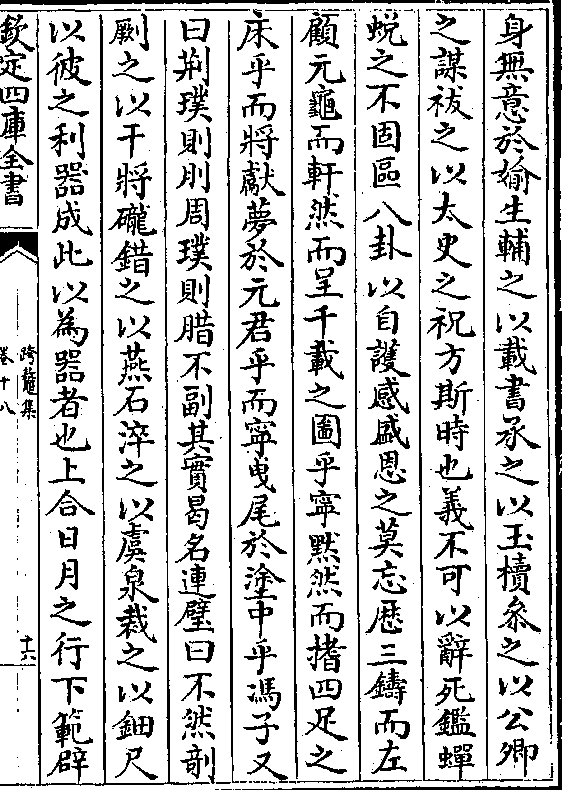 身無意於媮生輔之以載書承之以玉櫝叅之以公卿
之謀祓之以太史之祝方斯時也義不可以辭死鑑蟬
蜕之不固區八卦以自護感盛恩之莫忘歴三鑄而左
顧元龜而軒然而呈千載之圖乎寧默然而搘四足之
床乎而將獻夢於元君乎而寧曵尾於塗中乎馮子又
曰荆璞則刖周璞則腊不副其實曷名連璧曰不然剖
劂之以干將礲錯之以燕石淬之以虞泉裁之以鈿尺
以彼之利器成此以為器者也上合日月之行下範辟
欽定四庫全書
跨鼇集
卷十八
十六